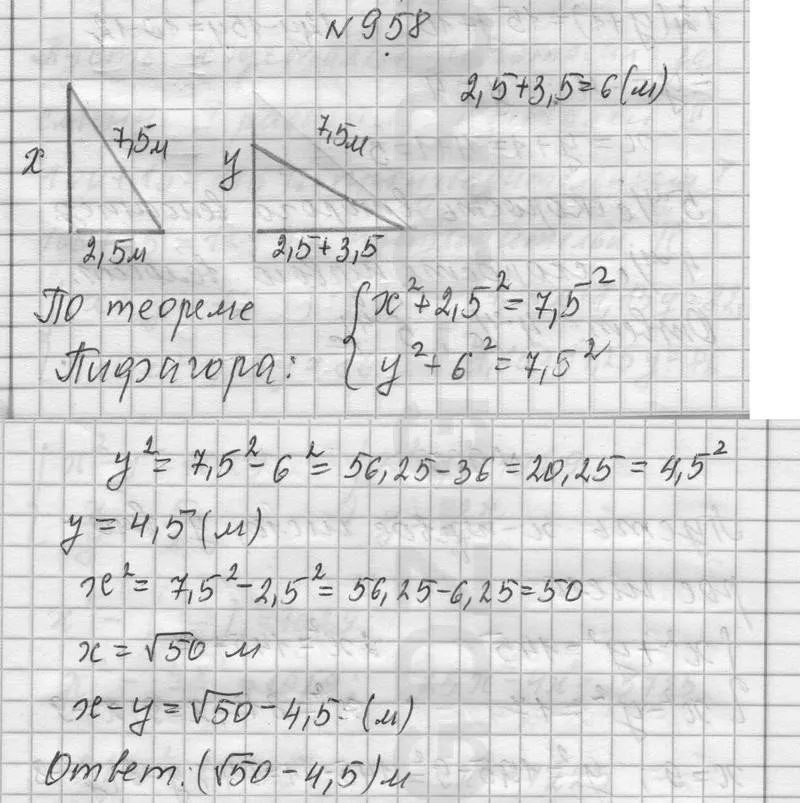 № 958
2,5+3,5=6(м)
x
7,5м
2,5м
y
7,5м
2,5+3,5
По теореме
Пифагора:
x²+2,5²=7,5²
y²+6²=7,5²
y²=7,5²-6²=56,25-36=20,25=4,5²
y=4,5(м)
x²=7,5²-2,5²=56,25-6,25=50
x=√50 м
x-y=√50-4,5 (м)
Ответ: (√50-4,5)м